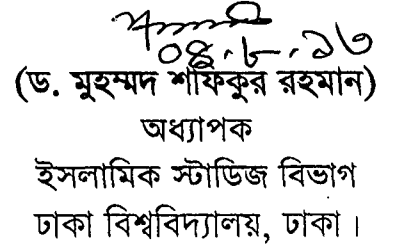 ০৪.৮.১৩
(ড. মুহম্মদ শাফিকুর রহমান)
অধ্যাপক
ইসলামিক স্টাডিজ বিভাগ
ঢাকা বিশ্ববিদ্যালয়, ঢাকা।